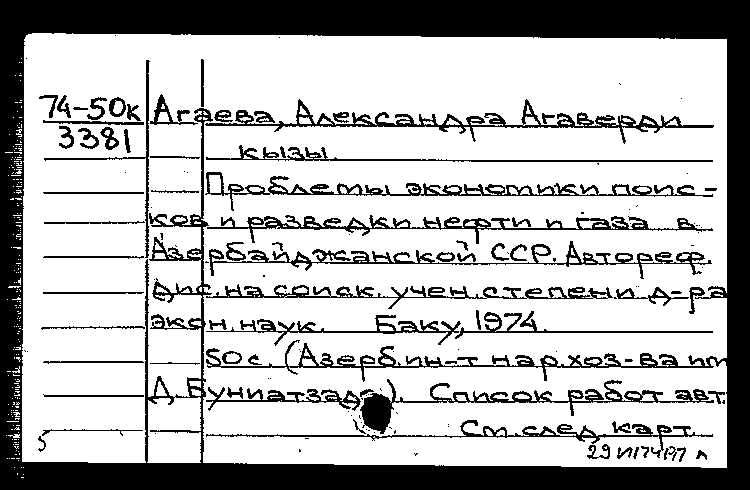 74-50к Агаева, Александра Агаверди
3381 кызы.
Проблемы экономики поис-
ков и разведки нефти и газа в
Азербайджанской ССР. Автореф.
дис. на соиск. учен. степени д-ра
экон. наук. Баку, 1974.
50 с. (Азерб. ин-т нар. хоз-ва им
Д. Буниатзаде). Список работ авт
См. след. карт.
5